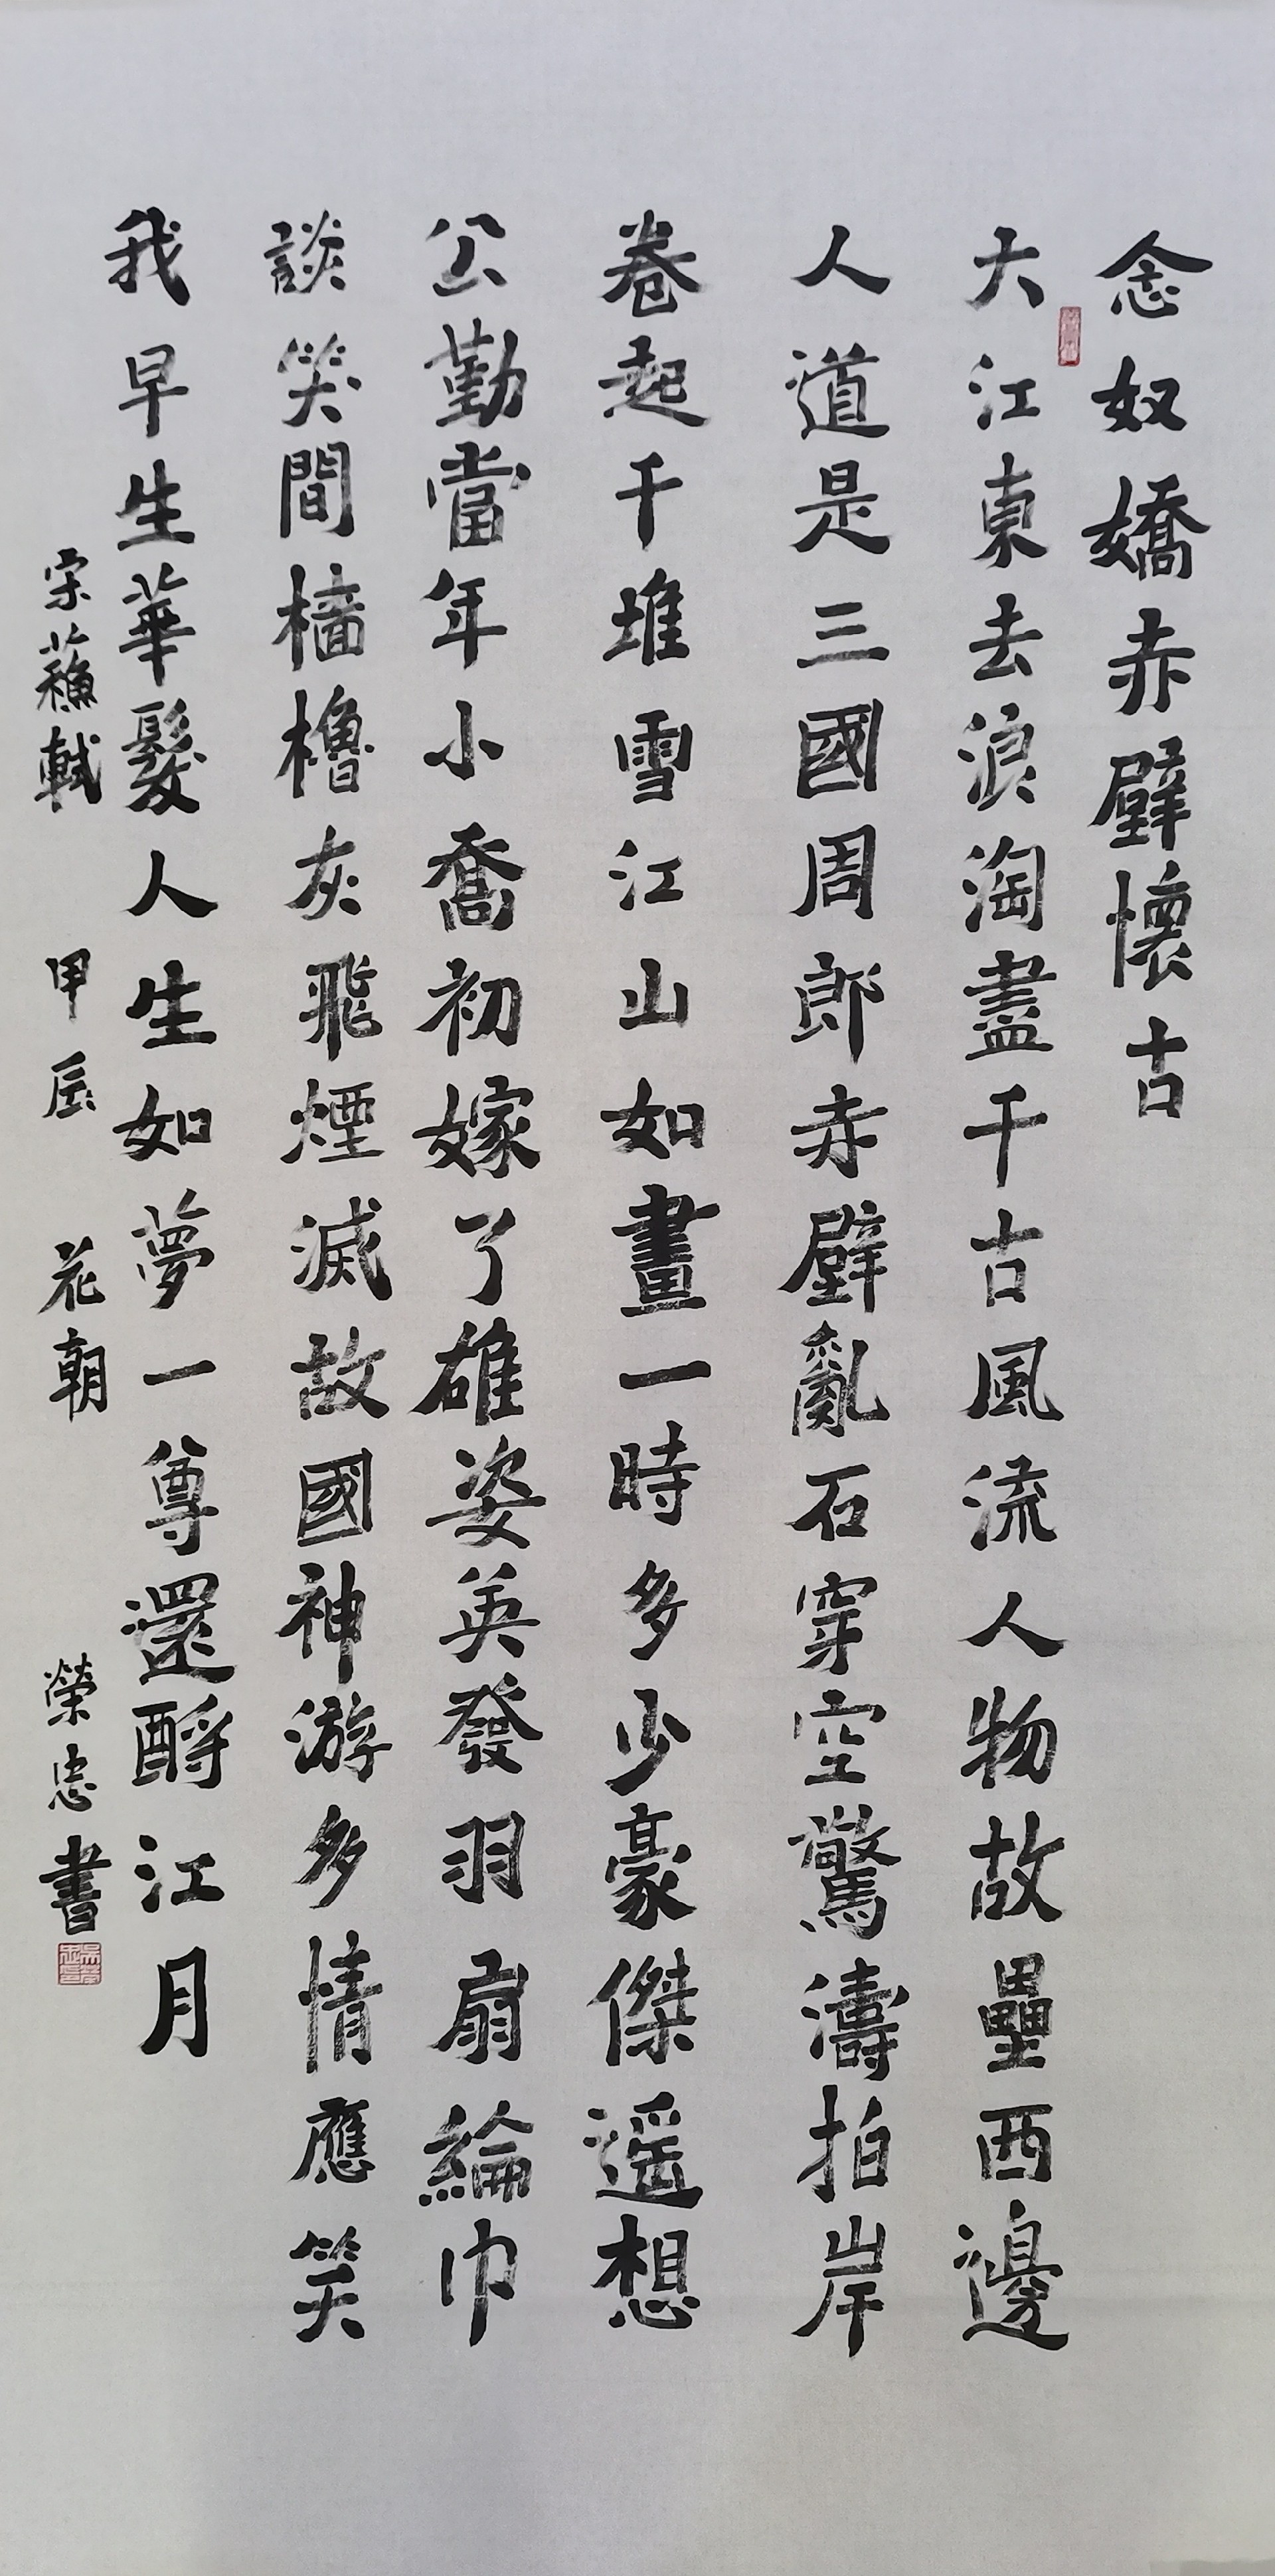 念奴嬌赤壁懷古
大江東去浪淘盡千古風流人物故壘西邊
人道是三國周郎赤壁亂石穿空驚濤拍岸
卷起千堆雪江山如畫一時多少豪傑遥想
公勤當年小喬初嫁了雄姿英發羽扇綸巾
談笑間檣櫓灰飛煙滅故國神游多情應笑
我早生華髮人生如夢一尊還酹江月
宋蘇軾 甲辰 花朝 榮忠書